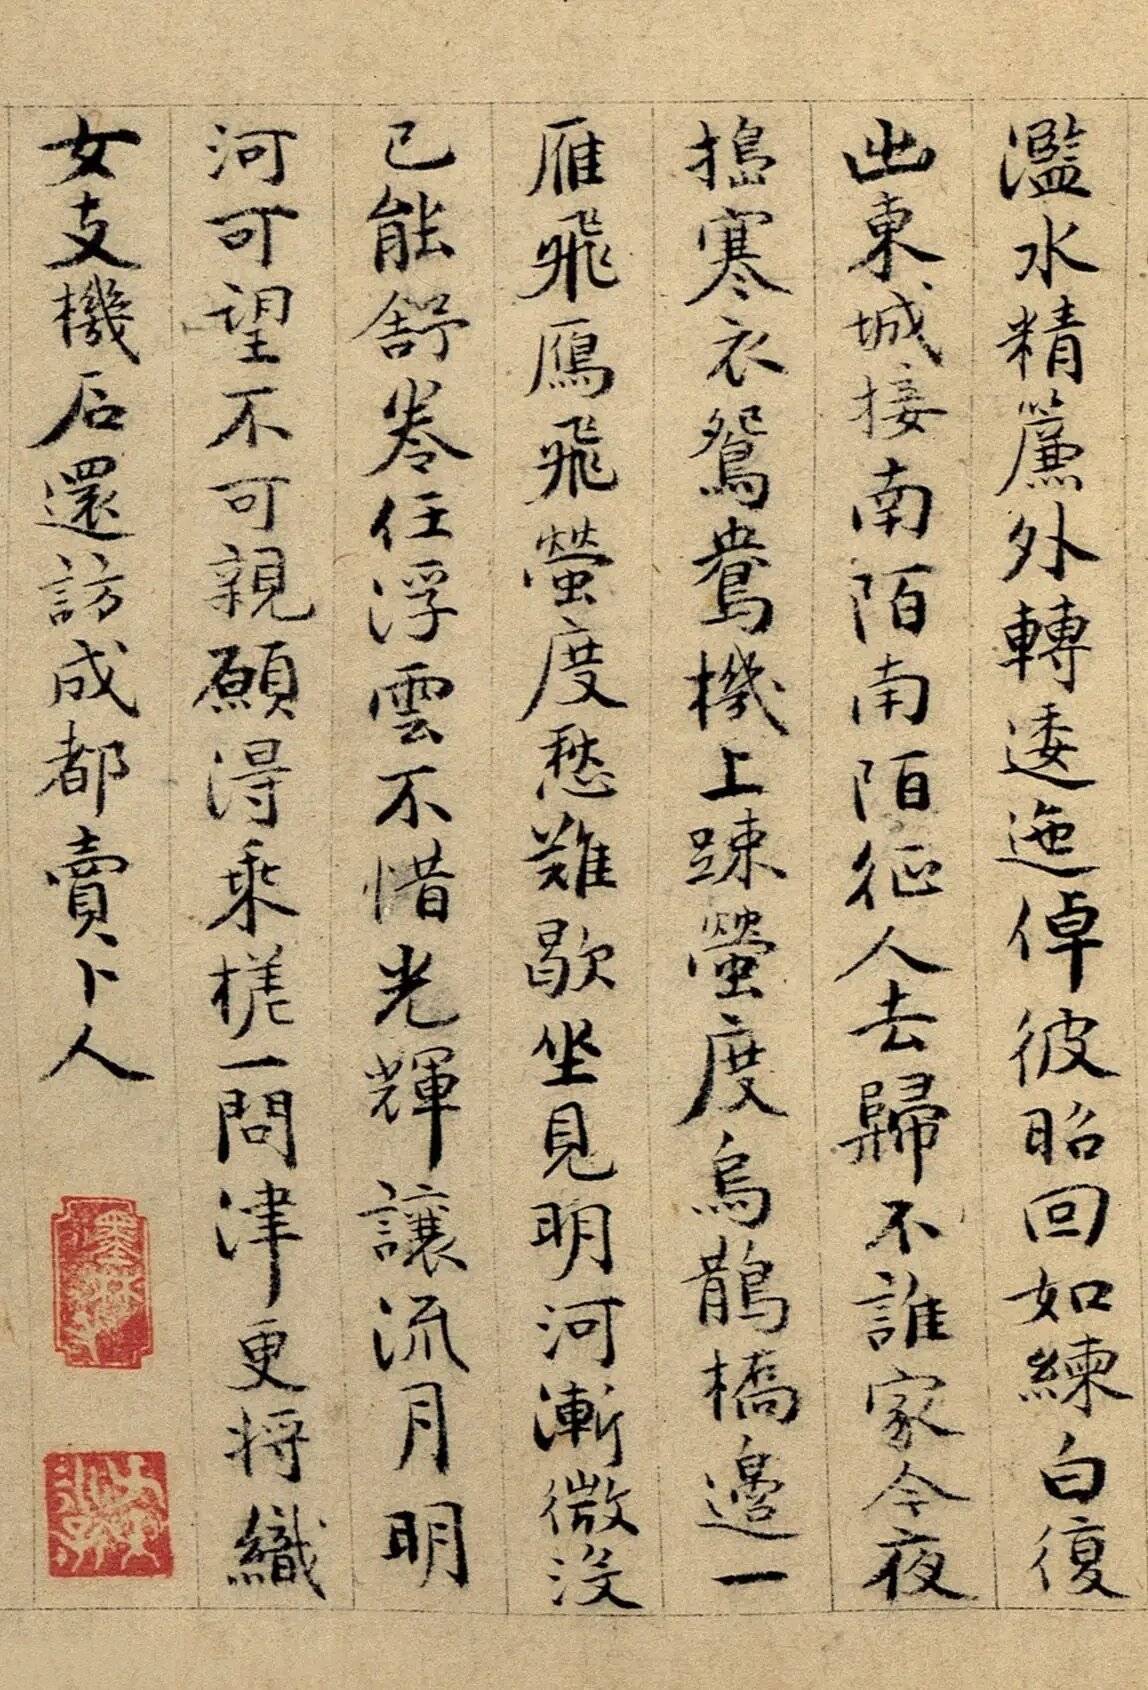 濫水精簾外轉逶迤倬彼昭回如練白復
出東城接南陌南陌征人去歸不誰家今夜
擣寒衣鴛鴦機上踈螢度烏鵲橋邊一
雁飛鴈飛螢度愁難歇坐見明河漸微沒
已能舒卷任浮雲不惜光輝讓流月明
河可望不可親願得乘槎一問津更將織
女支機石還訪成都賣卜人